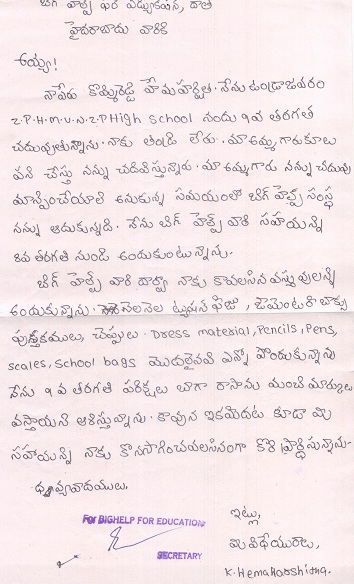 బిగ్ హెల్ప్ ఫర్ ఎడ్యుకేషన్, దాత
హైదరాబాదు వారికి
అయ్యా!
నాపేరు కొమ్మిరెడ్డి హేమహర్షిత. నేను ఉండ్రాజవరం
Z.P.H.M.U.N.Z.P High School నందు 9వ తరగతి
చదువుతున్నాను. నాకు తండ్రి లేరు. మా అమ్మగారు కూలి
పని చేస్తు నన్ను చదివిస్తున్నారు. మా అమ్మగారు నన్ను చదువు
మాన్పించేయాలి అనుకున్న సమయంలో బిగ్ హెల్ప్ సంస్థ
నన్ను ఆదుకున్నది. నేను బిగ్ హెల్ప్ వారి సహయన్ని
8వ తరగతి నుండి అందుకుంటున్నాను.
బిగ్ హెల్ప్ వారి ద్వారా నాకు కావలసిన వస్తువులన్ని
అందుకున్నాను. నెలనెల ట్యూషన్ ఫీజు, జామెంటరీ బాక్సు
పుస్తకములు, చెప్పులు. Dress material, Pencils, Pens,
scales, School bags మొదలైనవి ఎన్నో పొందుకున్నాను
నేను 9వ తరగతి పరీక్షలు బాగా రాసాను మంచి మార్కులు
వస్తాయని ఆశిస్తున్నాను. కావున ఇకమీదట కూడా మీ
సహాయన్ని నాకు కొనసాగించవలసినంగా కోరి ప్రార్థిస్తున్నాను.
ధన్యవాదములు.
ఇట్లు,
మీ విధేయురాలు,
K. Hema Harshitha.
For BIGHELP FOR EDUCATION
SECRETARY